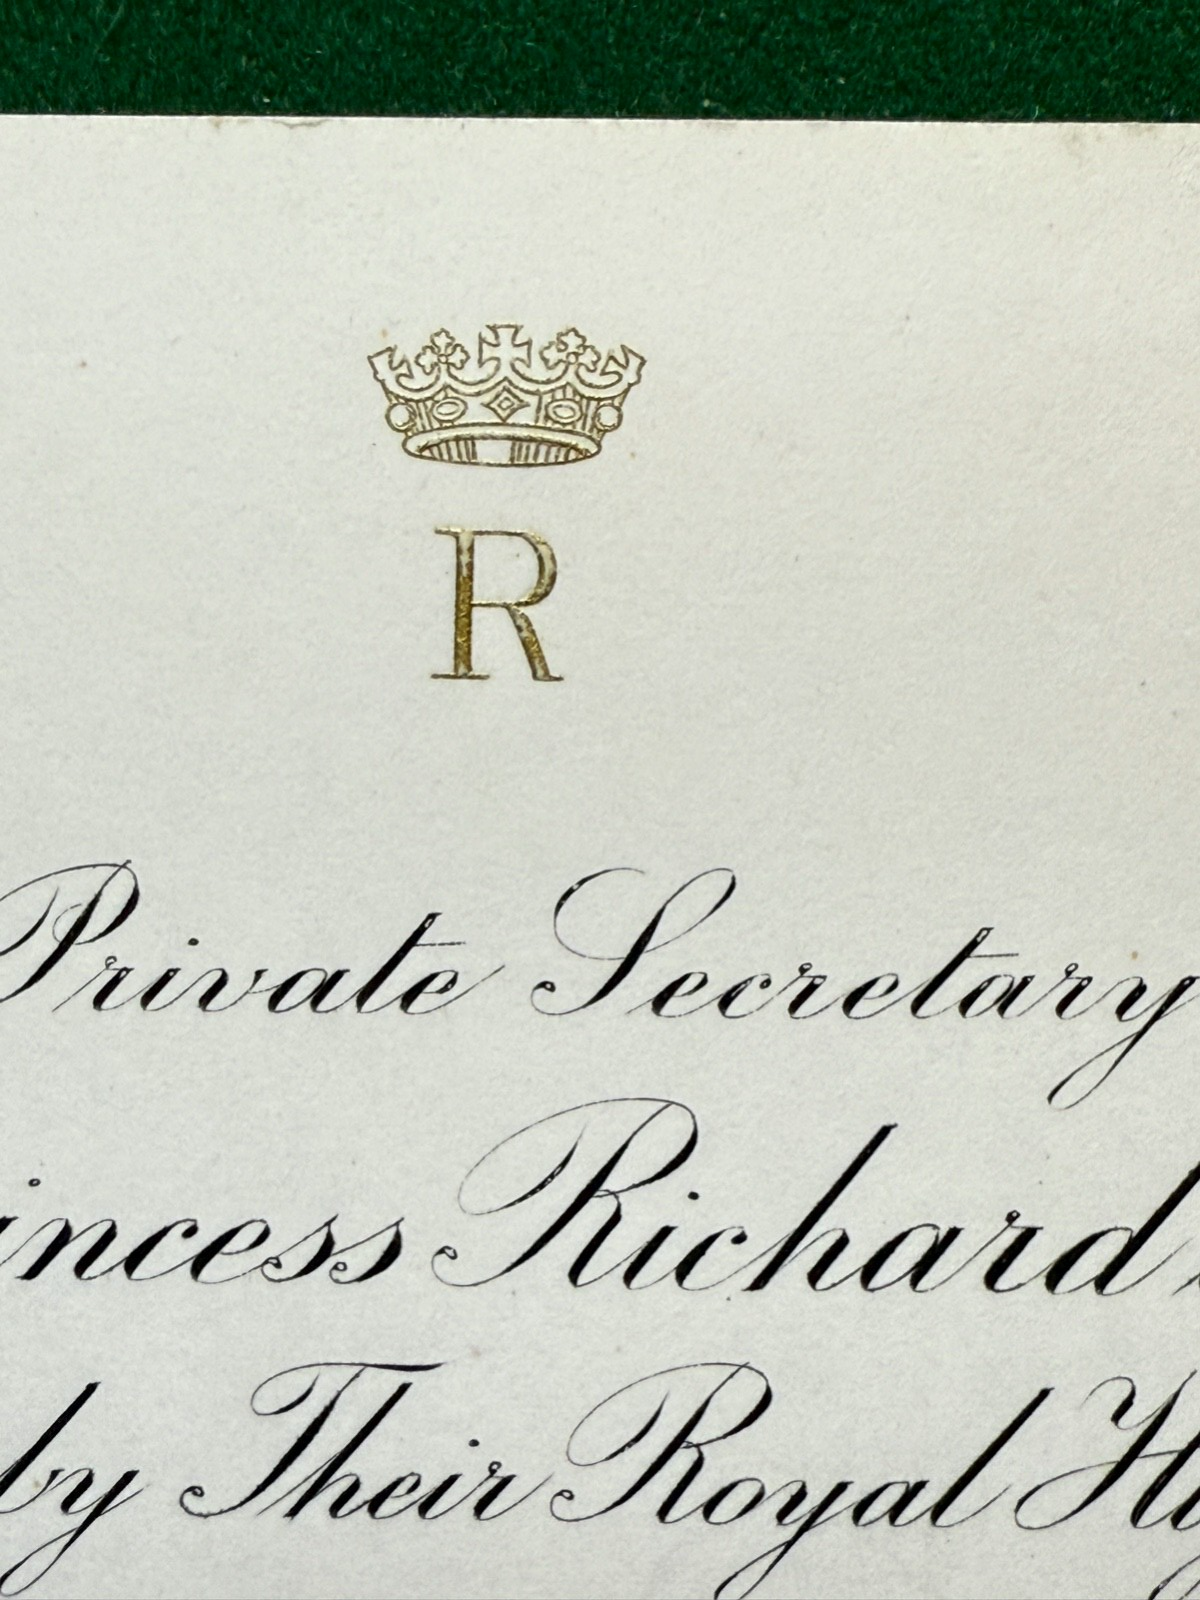 R
Private Secretary
incess Richard
by Their Royal